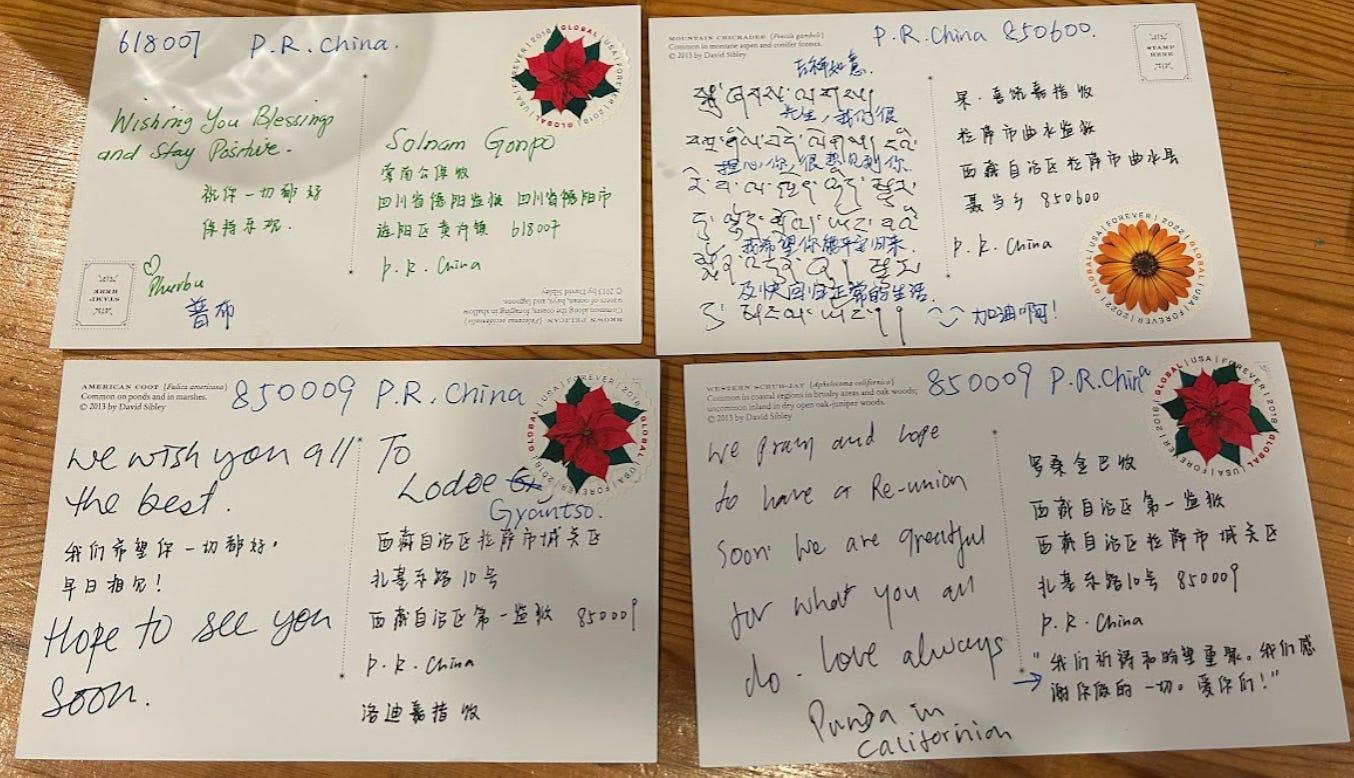 618007 P.R.China.
Wishing You Blessings
and Stay Positive.
祝你一切都好
保持乐观.
Phurbu
普布
STAMP
HERE
GLOBAL USA FOREVER 2018
Solnam Gonpo
收
四川省德阳监狱 四川省德阳市
旌阳区黄许镇 618007
P.R. China
BROWN PELICAN {Pelecanus occidentalis}
Common along coasts, foraging in shallow
waters of ocean, bays, and lagoons.
© 2013 by David Sibley
MOUNTAIN CHICKADEE {Poecile gambeli}
Common in montane aspen and conifer forests.
© 2013 by David Sibley
P.R.China 850600.
STAMP
HERE
吉祥如意.
先生,我们很
担心你,很想见到你
我希望你能平安归来.
及快回归正常的生活.
加油啊!
嘉措收
拉萨市曲水监狱
西藏自治区拉萨市曲水县
聂当乡 850600
P.R. China
GLOBAL USA FOREVER 2022
AMERICAN COOT {Fulica americana}
Common on ponds and in marshes.
© 2013 by David Sibley
850009 P.R.China
GLOBAL USA FOREVER 2018
We wish you all
the best.
我们希望你一切都好,
早日相见!
Hope to see you
soon.
To
Lodoe
Gyantso.
西藏自治区拉萨市城关区
扎基东路10号
西藏自治区第一监狱 850009
P.R. China
洛迪嘉措收
WESTERN SCRUB-JAY {Aphelocoma californica}
Common in coastal regions in brushy areas and oak woods;
uncommon inland in dry open oak-juniper woods.
© 2013 by David Sibley
850009 P.R.China
GLOBAL USA FOREVER 2018
We pray and hope
to have a Re-union
soon. We are greatful
for what you all
do. Love always
in
Californian
罗桑金巴收
西藏自治区第一监狱
西藏自治区拉萨市城关区
扎基东路10号 850009
P.R. China
"我们祈祷和盼望重聚。我们感
谢你做的一切。爱你们!"